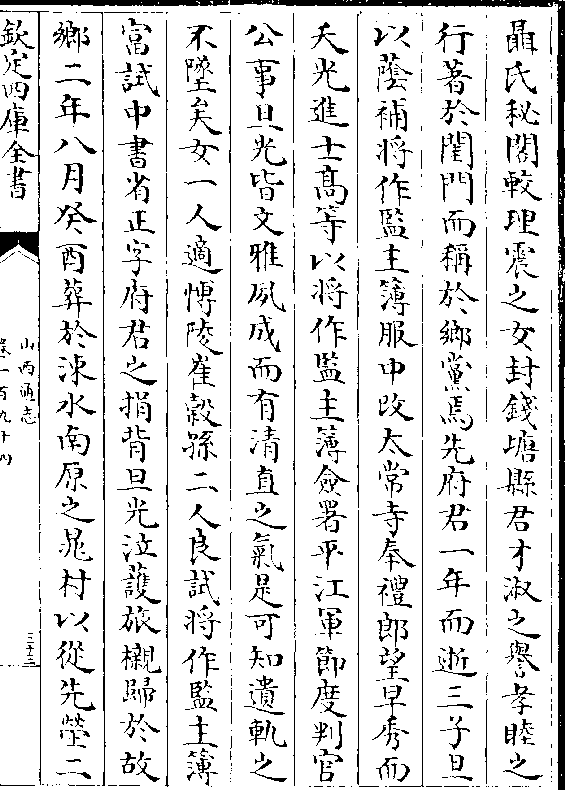 聶氏秘閣較理震之女封錢塘縣君才淑之譽孝睦之
行著於閨門而稱於鄉黨焉先府君一年而逝三子旦
以蔭補將作監主簿服中改太常寺奉禮郎望早秀而
夭光進士髙等以將作監主簿僉署平江軍節度判官
公事旦光皆文雅夙成而有清直之氣是可知遺軌之
不墜矣女一人適博陵崔榖孫二人良試將作監主簿
富試中書省正字府君之捐背旦光泣護旅櫬歸於故
鄉二年八月癸酉葬於涑水南原之晁村以從先塋二
欽定四庫全書
山西通志
卷一百九十四
三十三